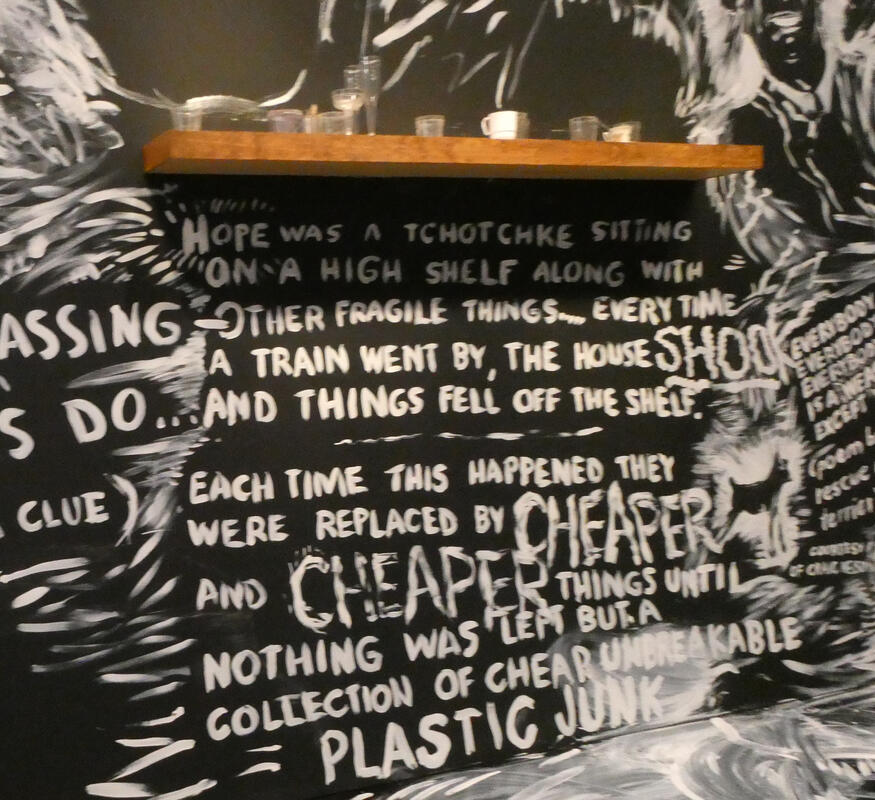 HOPE WAS A TCHOTCHKE SITTING
ON A HIGH SHELF ALONG WITH
OTHER FRAGILE THINGS.... EVERY TIME
A TRAIN WENT BY, THE HOUSE SHOOK
AND THINGS FELL OFF THE SHELF.
EACH TIME THIS HAPPENED THEY
WERE REPLACED BY CHEAPER
AND CHEAPER THINGS UNTIL
NOTHING WAS LEFT BUT A
COLLECTION OF CHEAP UNBREAKABLE
PLASTIC JUNK
ASSING
S DO...
CLUE)
EVERYBODY
EVERYBOD
EVERYBOD
IS A WEA
EXCEPT
(poem b
rescue
terrier
COURTESY